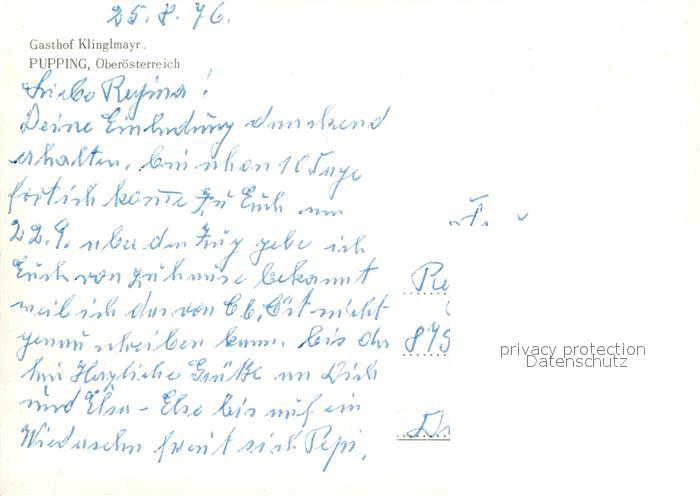 25.8.76.
Gasthof Klinglmayr.
PUPPING, Oberösterreich
Liebe Regina!
Deine Einladung dankend
erhalten, bin schon 10 Tage
fort ich komme zu Euch am
22.9. aber den Zug gebe ich
Euch von zuhause bekannt
weil ich das von Ob. Öst nicht
genau schreiben kann. bis da
hin Herzliche Grüße an Dich
und Elsa - Else bis auf ein
Wiedersehn freut sich Pepi.
Re
879
privacy protection
Datenschutz